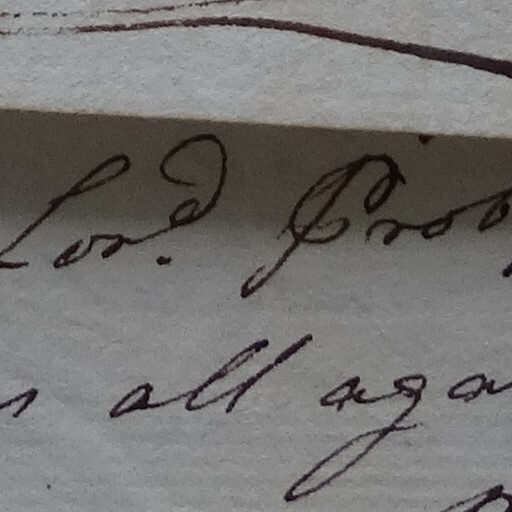 Lord. Prob
s all aga